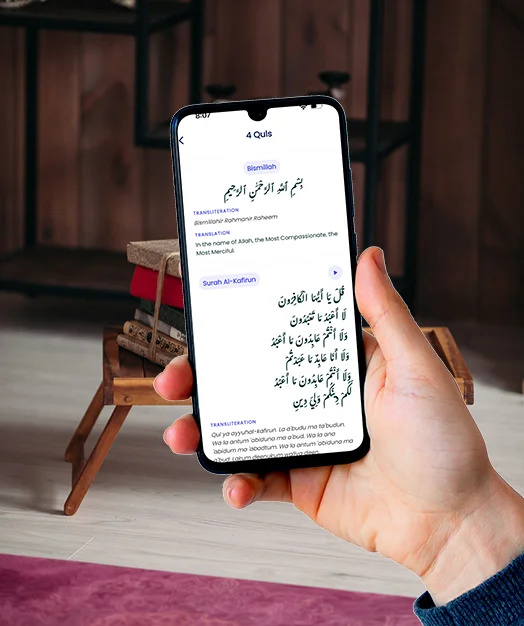 8:07
4 Quls
Bismillah
بِسْمِ اللَّهِ الرَّحْمَٰنِ الرَّحِيمِ
TRANSLITERATION
Bismillahir Rahmanir Raheem
TRANSLATION
In the name of Allah, the Most Compassionate, the
Most Merciful.
Surah Al-Kafirun
قُلْ يَا أَيُّهَا الْكَافِرُونَ
لَا أَعْبُدُ مَا تَعْبُدُونَ
وَلَا أَنتُمْ عَابِدُونَ مَا أَعْبُدُ
وَلَا أَنَا عَابِدٌ مَا عَبَدتُّمْ
وَلَا أَنتُمْ عَابِدُونَ مَا أَعْبُدُ
لَكُمْ دِينُكُمْ وَلِيَ دِينِ
TRANSLITERATION
Qul ya ayyuhal-kafirun. La a'budu ma ta'budun.
Wa la antum 'abiduna ma a'bud. Wa la ana
'abidum ma 'abadtum. Wa la antum 'abiduna ma
a'bud. Lakum deenukum wa liya deen.